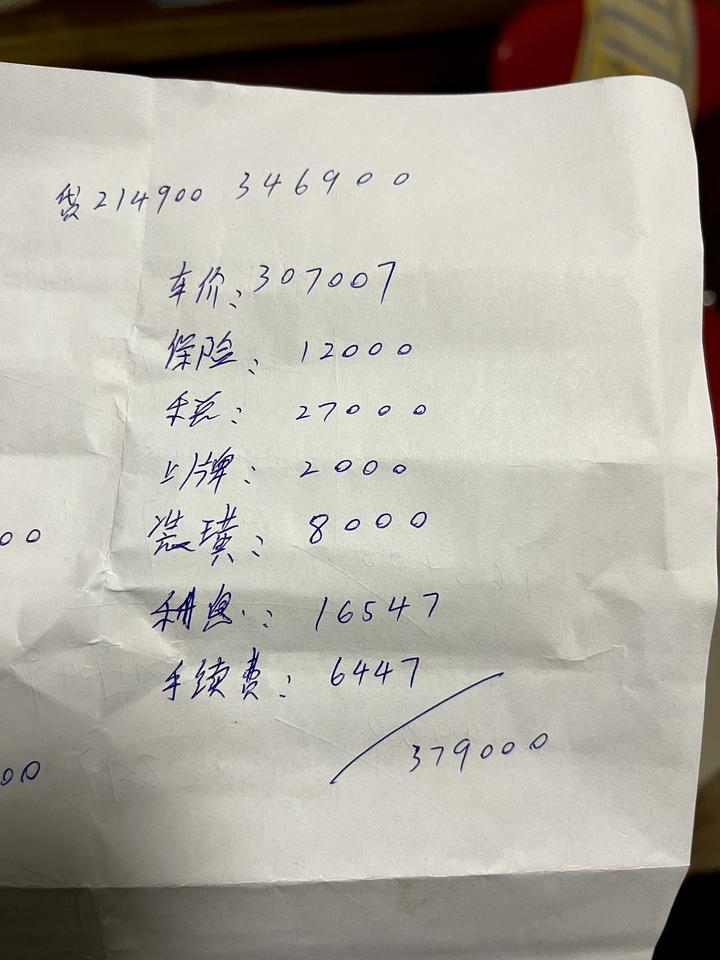 贷214900 346900
车价:307007
保险:12000
税:27000
上牌:2000
装璜:8000
00
利息:16547
手续费:6447
379000
00